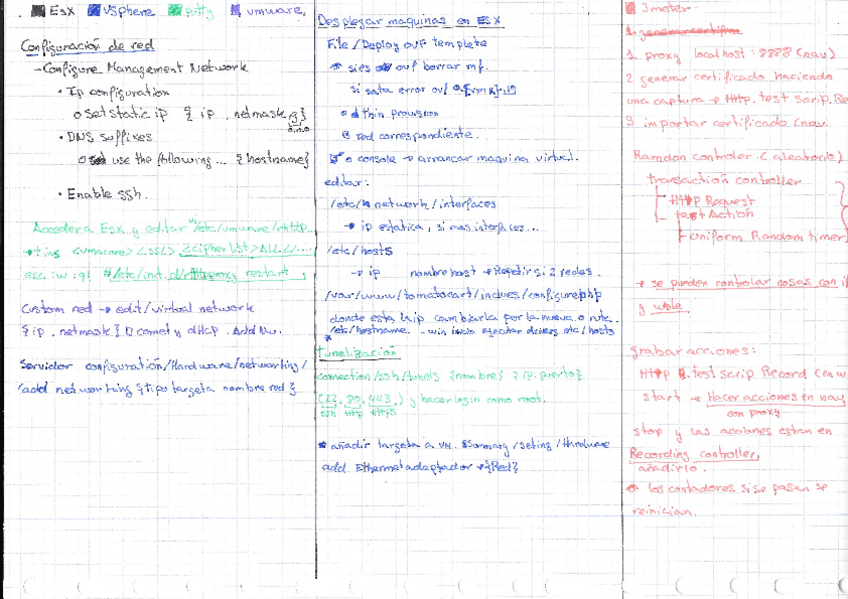 ESX vSphere putty vmware,
Configuración de red
- Configure Management Network
• Ip configuration
o Set static ip { ip, netmask, g}
• DNS suffixes
o use the following ... {hostname}
• Enable ssh.
Accedera Esx y editar
esc :w :q!
restart
Custom red → edit/virtual network
{ip, netmask}
y dhcp. Add Nw.
Servidor configuración/Hardware/networking/
add networking {tipo targeta nombre red}
Desplegar maquinas en ESX
File/Deploy ovf templete
si es ovf borrar mf.
si salta error ovf
thin provision
red correspondiente.
o console → arrancar maquina virtual.
editar:
/etc/network/interfaces
→ ip estatica, si mas interfaces...
/etc/hosts
→ ip nombrehost → Repetir si 2 redes.
/var/www/tomatocart/inclues/configure.php
donde esta la ip cambiarla por la nueva.
/etc/hostname. - win inicio ejecutar drivers etc/hosts
Tunelización
connection/ssh/tunels {nombre} {ip:puerto}
(22, 80, 443,) y hacer login como root.
ssh http https
* añadir targeta a VM. Summary/seting/Hardware
add Ethernet adaptador → {Red}
Jmeter
1 proxy localhost:8888 (nav)
2 generar certificado haciendo
una captura → HTTP. test scrip. Re
3 importar certificado (nav.
Ramdon controler (aleatorio)
transaction controller
HTTP Request
test Action
Uniform Random timer
→ se pueden controlar cosas con if
y while.
grabar acciones:
HTTP test scrip Record (en w
start → Hacer acciones en nav,
con proxy
stop y las acciones estan en
Recording controller,
añadirlo.
los contadores si se pasan se
reinician.